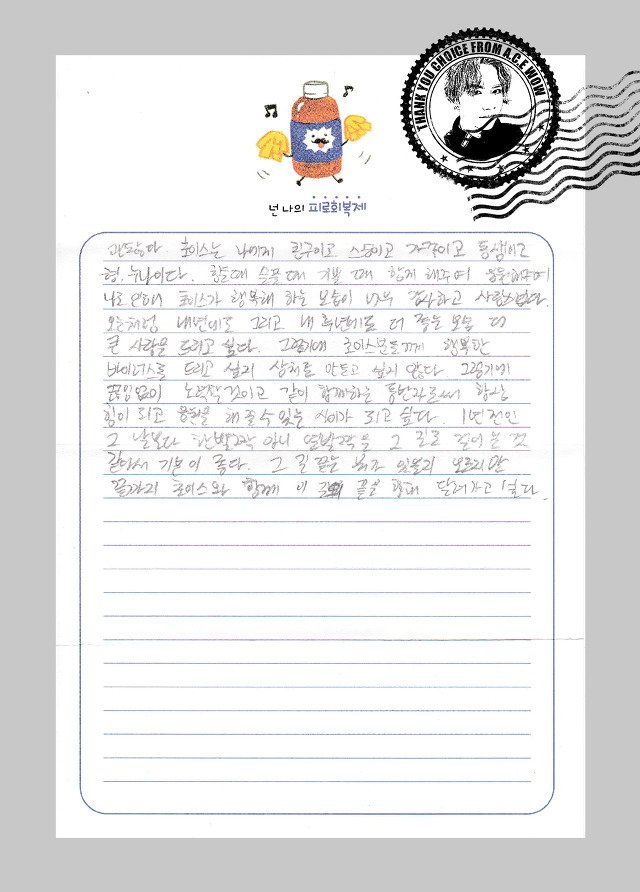 THANK YOU CHOICE FROM A.C.E WOW
넌 나의 피로회복제
초이스는 나에게 친구이고 스승이고 가족이고 동생이고
형, 누나이다. 힘들 때 슬플 때 기쁠 때 함께 해주며
나로 인해 초이스가 행복해 하는 모습이 너무 감사하고 사랑스럽다.
오늘처럼 내년에도 그리고 내 후년에도 더 좋은 모습 더
큰 사랑을 드리고 싶다. 그렇기에 초이스분들께 행복한
바이러스를 드리고 싶지 상처를 만들고 싶지 않다. 그렇기에
끊임없이 노력할 것이고 같이 함께하는 동반자로써 항상
힘이 되고 응원을 해줄 수 있는 사이가 되고 싶다. 1년 전인
그 날보다 한 발자국 아니 열 발자국을 그 길로 걸어온 것
같아서 기분이 좋다. 그 길 끝은 뭐가 있을지 모르지만
끝까지 초이스와 함께 이 길의 끝을 향해 달려가고 싶다.